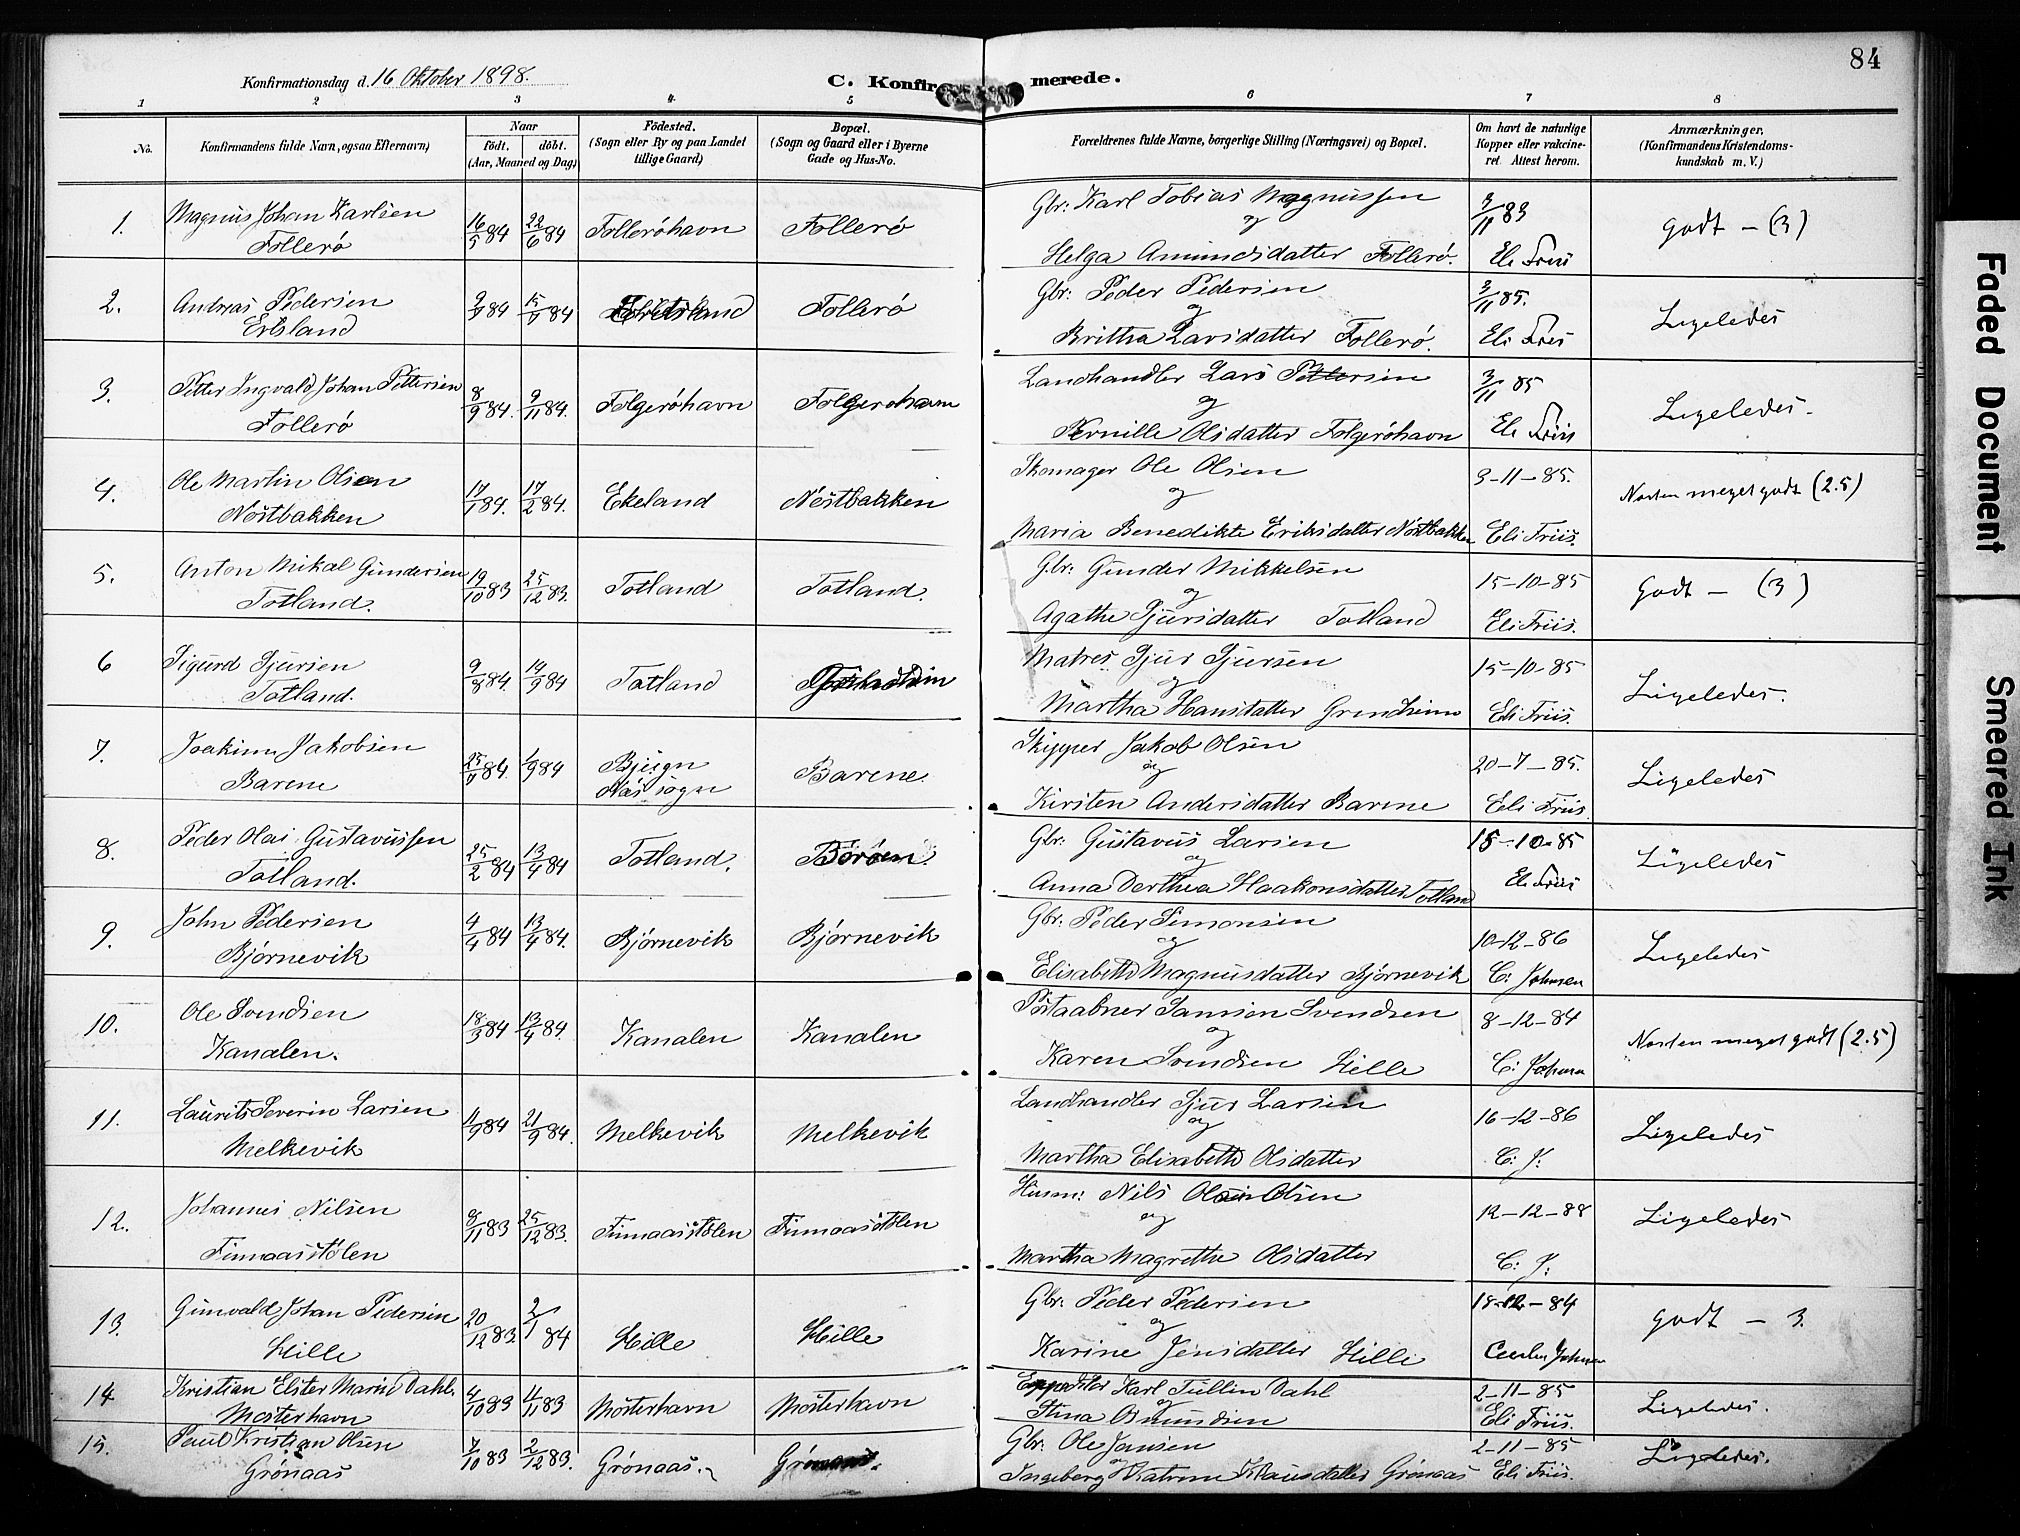 84
Konfirmationsdag d. 16 Oktober 1898.
C. Konfirmerede.
1 2 3 4 5 6 7 8
No.
Konfirmandens fulde Navn, ogsaa Efternavn)
Naar
födt. döbt.
(Aar, Maaned og Dag)
Födested.
(Sogn eller By og paa Landet
tillige Gaard)
Bopæl.
(Sogn og Gaard eller i Byerne
Gade og Hus-No.
Forældrenes fulde Navne, borgerlige Stilling (Næringsvei) og Bopæl.
Om havt de naturlige
Kopper eller vakcine-
ret. Attest herom.
Anmærkninger.
(Konfirmandens Kristendoms-
kundskab m. V.)
1. Magnus Johan Karlsen
Follerø
16/5 84 22/6 84 Follerøhavn Follerø
Gbr: Karl Tobias Magnussen
og
Helga Amundsdatter Follerø.
3/11 83
Eli Friis
Godt – (3)
2. Andreas Pedersen
Ertsland
15/7 84 Follerø
Gbr: Peder Pedersen
og
Brittha Larsdatter Follerø.
3/11 85.
Eli Friis
Ligeledes
3. Petter Ingvald Johan Pettersen
Follerø
8/9 84. 9/11 84. Folgerøhavn Folgerøhavn
Landhandler Lars Pettersen
og
Pernille Olsdatter Folgerøhavn
3/11 85
Eli Friis
Ligeledes.
4. Ole Martin Olsen
Nøstbakken
17/1 84. 17/2 84. Ekeland Nøstbakken
Skomager Ole Olsen
og
Maria Benedikte Eriksdatter Nøstbakken
3-11-85.
Eli Friis.
Næsten meget godt (2.5)
5. Anton Mikal Gundersen
Totland.
19/10 83 25/12 83. Totland Totland.
Gbr: Gunder Mikkelsen
og
Agathe Sjursdatter Totland
15-10-85
Eli Friis.
Godt – (3)
6 Sigurd Sjursen
Totland.
9/8 84. 14/9 84 Totland
Matros Sjur Sjursen
og
Martha Hansdatter Grindheim
15-10-85
Eli Friis.
Ligeledes.
7. Joakim Jakobsen
Barene
84. 1/9 84 Bjugn
Næs sogn
Barene.
Skipper Jakob Olsen
og
Kirsten Andersdatter Barene
20-7-85.
Eli Friis.
Ligeledes
8. Peder Olai Gustavussen
Totland.
25/2 84 13/4 84 Totland. Børøen
Gbr: Gustavus Larsen
og
Anna Derthea Haakonsdatter Totland
15-10-85
Eli Friis
Ligeledes
9. John Pedersen
Bjørnevik
4/4 84 13/4 84. Bjørnevik Bjørnevik
Gbr: Peder Simonsen
og
Elisabeth Magnusdatter Bjørnevik
10-12-86
C: Johnsen
Ligeledes
10. Ole Svendsen
Kanalen.
18/3 84 13/4 84. Kanalen Kanalen
Postaabner Samson Svendsen
og
Karen Svendsen Hille
8-12-84
C: Johnsen
Næsten meget godt (2.5)
11. Laurits Severin Larsen
Melkevik
84 21/9 84. Melkevik Melkevik
Landhandler Sjur Larsen
og
Martha Elisabeth Olsdatter
16-12-86
C: J:
Ligeledes
12. Johannes Nilsen
Finnaasstølen
8/11 83 25/12 83. Finnaasstølen Finnaasstølen
Husm: Nils Olsen
og
Martha Magrethe Olsdatter
12-12-88
C: J:
Ligeledes
13. Gunvald Johan Pedersen
Hille
20/12 83. 2/1 84 Hille Hille
Gbr: Peder Pedersen
og
Karine Jensdatter Hille
18-12-84
Cecilie Johnsen
Godt – 3.
14 Kristian Elster Marius Dahl.
Mosterhavn
4/10 83 4/11 83 Mosterhavn Mosterhavn
Expeditør Karl Tullin Dahl
og
Stina Osmundsen
2-11-85
Eli Friis.
Ligeledes.
15. Paul Kristian Olsen
Grønaas
7/10 83 2/12 83. Grønaas.
Gbr: Ole Jansen
og
Ingeborg Katrine Klausdatter Grønaas
2-11-85
Eli Friis.
Ligeledes.
Faded Document
Smeared Ink